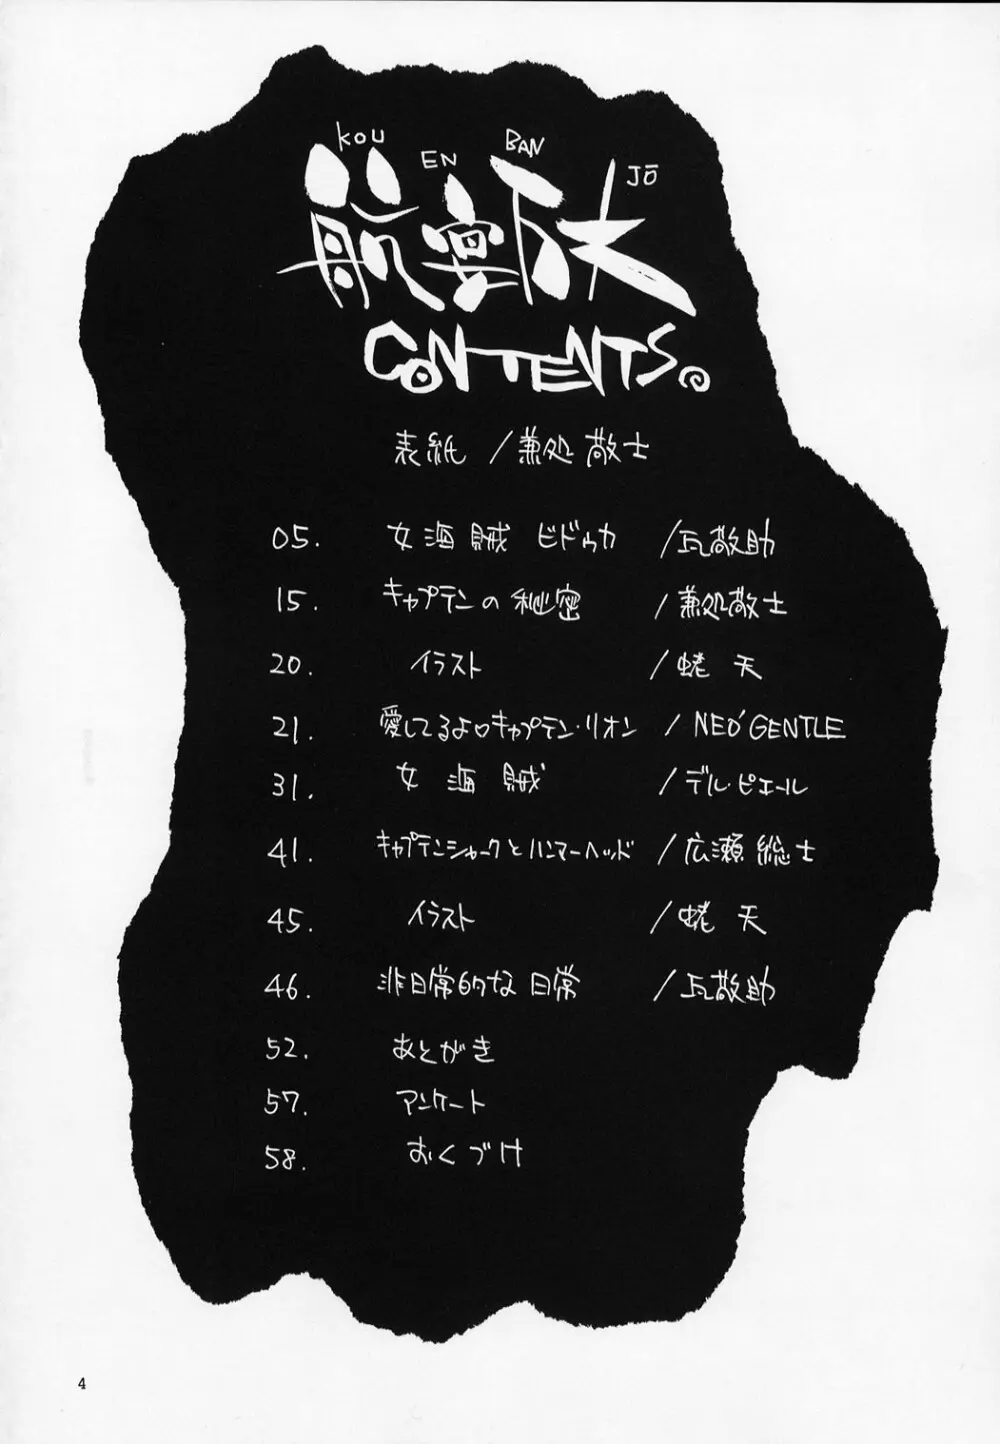 KOU EN BAN JŌ
航宴万丈
CONTENTS。
表紙 /兼処敬士
05. 女海賊 ビドゥカ /瓦敬助
15. キャプテンの秘密 /兼処敬士
20. イラスト /蛯天
21. 愛してるよ♡キャプテン・リオン / NEO'GENTLE
31. 女海賊 /デル・ピエール
41. キャプテンシャークとハンマーヘッド /広瀬総士
45. イラスト /蛯天
46. 非日常的な日常 /瓦敬助
52. あとがき
57. アンケート
58. おくづけ
4